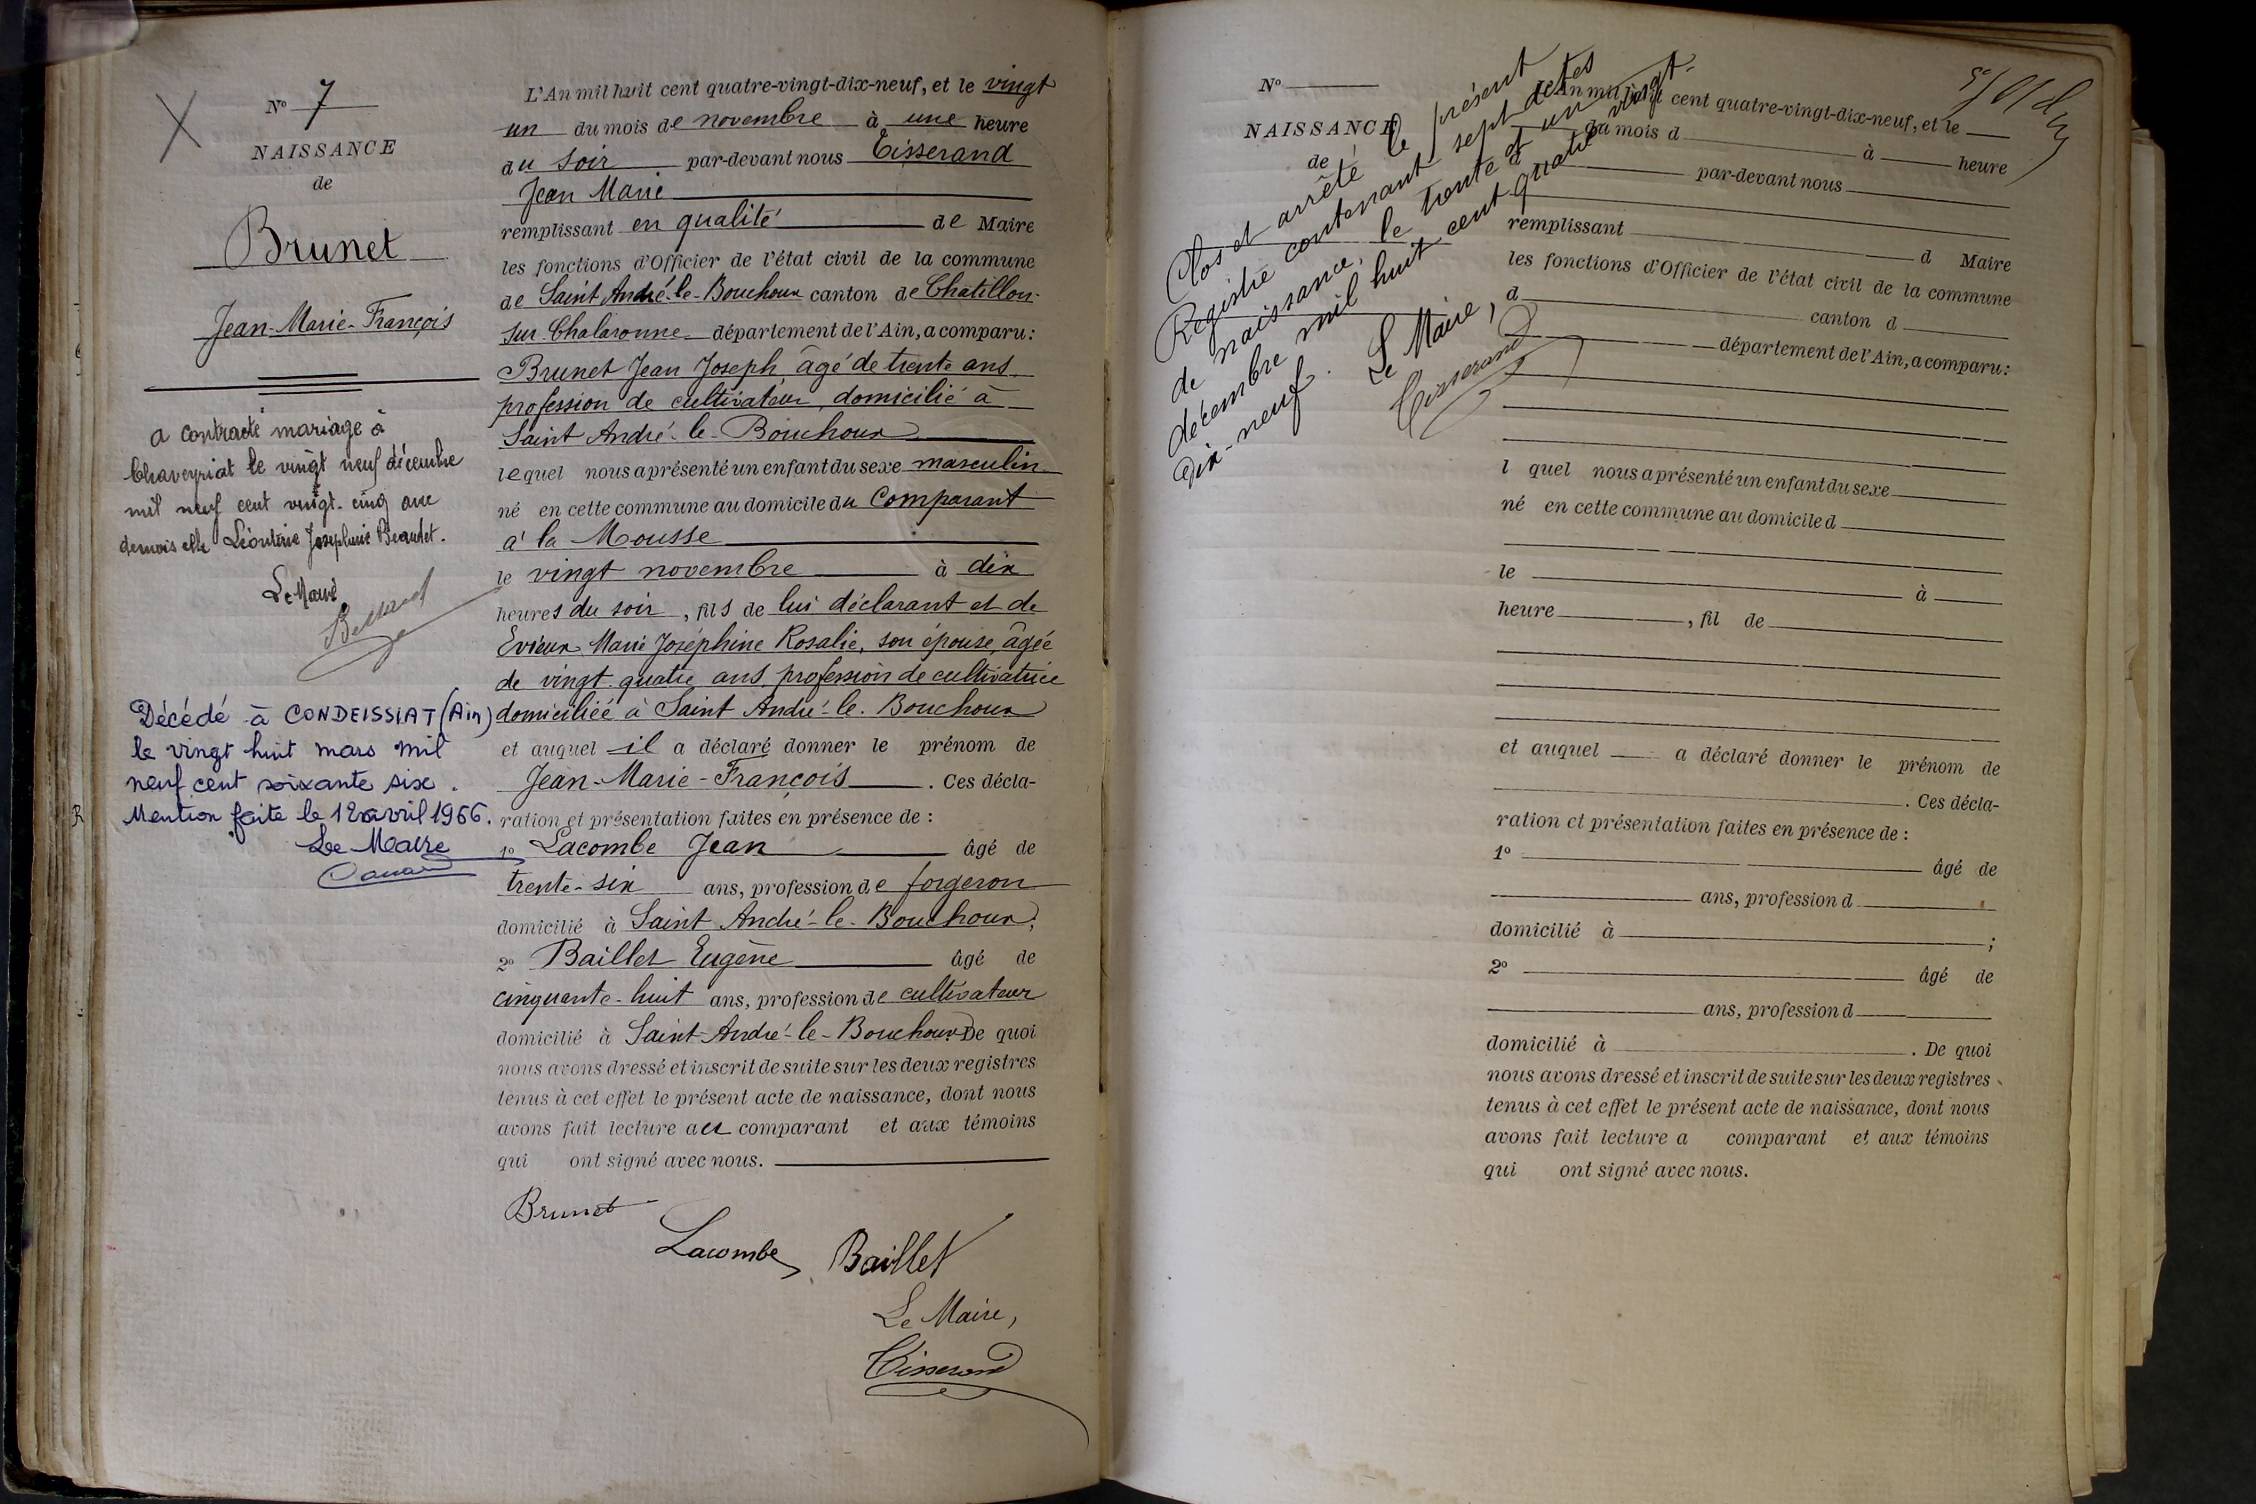 N° 7
NAISSANCE
de
Brunet
Jean-Marie-François
a contracté mariage à
Chaveyriat le vingt neuf décembre
mil neuf cent vingt-cinq avec
demoiselle Léontine Joséphine Beaudet.
Le Maire
Décédé à CONDEISSIAT (Ain)
le vingt huit mars mil
neuf cent soixante six.
Mention faite le 12 avril 1966.
Le Maire
L'An mil huit cent quatre-vingt-dix-neuf, et le vingt
un du mois de novembre à une heure
du soir par-devant nous Tisserand
Jean Marie
remplissant en qualité de Maire
les fonctions d'Officier de l'état civil de la commune
de Saint André-le-Bouchoux canton de Chatillon-
sur-Chalaronne département de l'Ain, a comparu:
Brunet Jean Joseph, âgé de trente ans
profession de cultivateur, domicilié à
Saint André-le-Bouchoux
lequel nous a présenté un enfant du sexe masculin
né en cette commune au domicile du Comparant
à la Mousse
le vingt novembre à dix
heures du soir, fils de lui déclarant et de
Evieux Marie Joséphine Rosalie, son épouse, âgée
de vingt-quatre ans profession de cultivatrice
domiciliée à Saint André-le-Bouchoux
et auquel il a déclaré donner le prénom de
Jean-Marie-François. Ces décla-
ration et présentation faites en présence de :
1° Lacombe Jean âgé de
trente-six ans, profession de forgeron
domicilié à Saint André-le-Bouchoux;
2° Baillet Eugène âgé de
cinquante-huit ans, profession de cultivateur
domicilié à Saint-André-le-Bouchoux. De quoi
nous avons dressé et inscrit de suite sur les deux registres
tenus à cet effet le présent acte de naissance, dont nous
avons fait lecture au comparant et aux témoins
qui ont signé avec nous.
Brunet
Lacombe Baillet
Le Maire,
Tisserand
Clos et arrêté le présent
Registre contenant sept actes
de naissance, le trente et un
décembre mil huit cent quatre vingt-
dix-neuf.
Le Maire,
Tisserand
N°
NAISSANCE
de
L'An mil huit cent quatre-vingt-dix-neuf, et le
du mois d à heure
d par-devant nous
remplissant d Maire
les fonctions d'Officier de l'état civil de la commune
d canton d
département de l'Ain, a comparu:
l quel nous a présenté un enfant du sexe
né en cette commune au domicile d
le à
heure , fil de
et auquel a déclaré donner le prénom de
. Ces décla-
ration et présentation faites en présence de :
1° âgé de
ans, profession d
domicilié à ;
2° âgé de
ans, profession d
domicilié à . De quoi
nous avons dressé et inscrit de suite sur les deux registres
tenus à cet effet le présent acte de naissance, dont nous
avons fait lecture a comparant et aux témoins
qui ont signé avec nous.